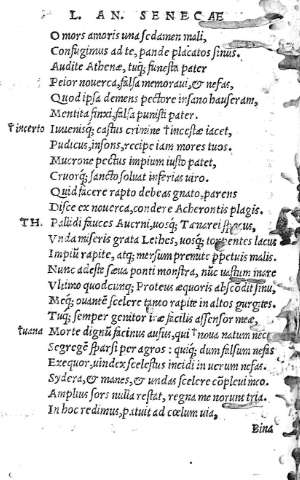 L. AN. SENECAE
O mors amoris una sedamen mali,
Confugimus ad te, pande placatos sinus.
Audite Athenae, tuq; funesta pater
Peior noverca, falsa memoravi, & nefas,
Quod ipsa demens pectore insano hauseram,
Mentita finxi, falsa punisti pater.
†incerto Iuvenisq; castus crimine †incestae iacet,
Pudicus, insons, recipe iam mores tuos.
Mucrone pectus impium iusto patet,
Cruorq; sancto solvat inferias viro.
Quid facere rapto debeas gnato, parens
Disce ex noverca, condere Acherontis plagis.
TH. Pallidi fauces Averni, vosq; Tanarei specus,
Vnda miseris grata Lethes, vosq; torpentes lacus
Impiũ rapite, atq; mersum premite ppetuis malis.
Nunc adeste saeva ponti monstra, nũc vastum mare
Vltimo quodcunq; Proteus aequoris abscõdit sinu,
Meq; ovantẽ scelere tamo rapite in altos gurgites.
Tuq; semper genitor irae facilis assensor meae,
†uana Morte dignũ facinus ausus, qui †nova natum nece
Segregẽ sparsi per agros: quiq; dum falsum nefas
Exequor, vindex scelestus incidi in verum nefas.
Sydera, & manes, & undas scelere cõplevi meo.
Amplius sors nulla restat, regna me norunt tria.
In hoc redimus, patuit ad coelum via,
Bina